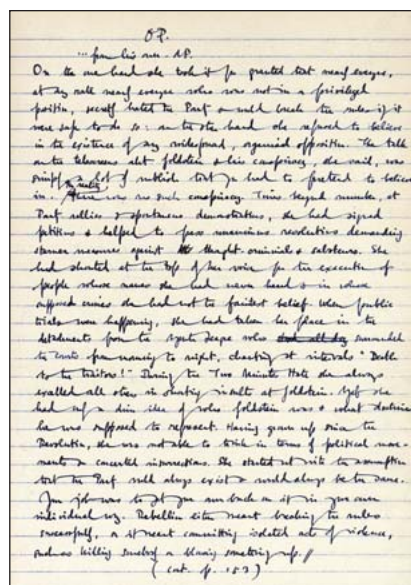 OP.
... from his own. AP.
On the one hand she took it for granted that nearly everyone,
at any rate nearly everyone who was not in a privileged
position, secretly hated the Party & would break the rules if it
were safe to do so: on the other hand she refused to believe
in the existence of any widespread, organised opposition. The talk
on the telescreens abt Goldstein & his conspiracy, she said, was
simply a lot of rubbish that you had to pretend to believe
in. There was no such conspiracy. Times beyond number, at
Party rallies & spontaneous demonstrations, she had signed
petitions & helped to pass unanimous resolutions demanding
sterner measures against thought-criminals & saboteurs. She
had shouted at the top of her voice for the execution of
people whose names she had never heard & in whose
supposed crimes she had not the faintest belief. When public
trials were happening, she had taken her place in the
detachments from the Youth League who surrounded
the courts from morning to night, chanting at intervals "Death
to the traitors!" During the Two Minutes Hate she always
excelled all others in shouting insults at Goldstein. Yet she
had only a dim idea of who Goldstein was & what doctrines
he was supposed to represent. Having grown up since the
Revolution, she was not able to think in terms of political move-
ments or concerted insurrections. She started out with the assumption
that the Party would always exist & would always be the same.
Your job was to get your own back on it in your own
individual way. Rebellion either meant breaking the rules
successfully, or it meant committing isolated acts of violence,
such as killing somebody or blowing something up. //
(cont. p. 153)